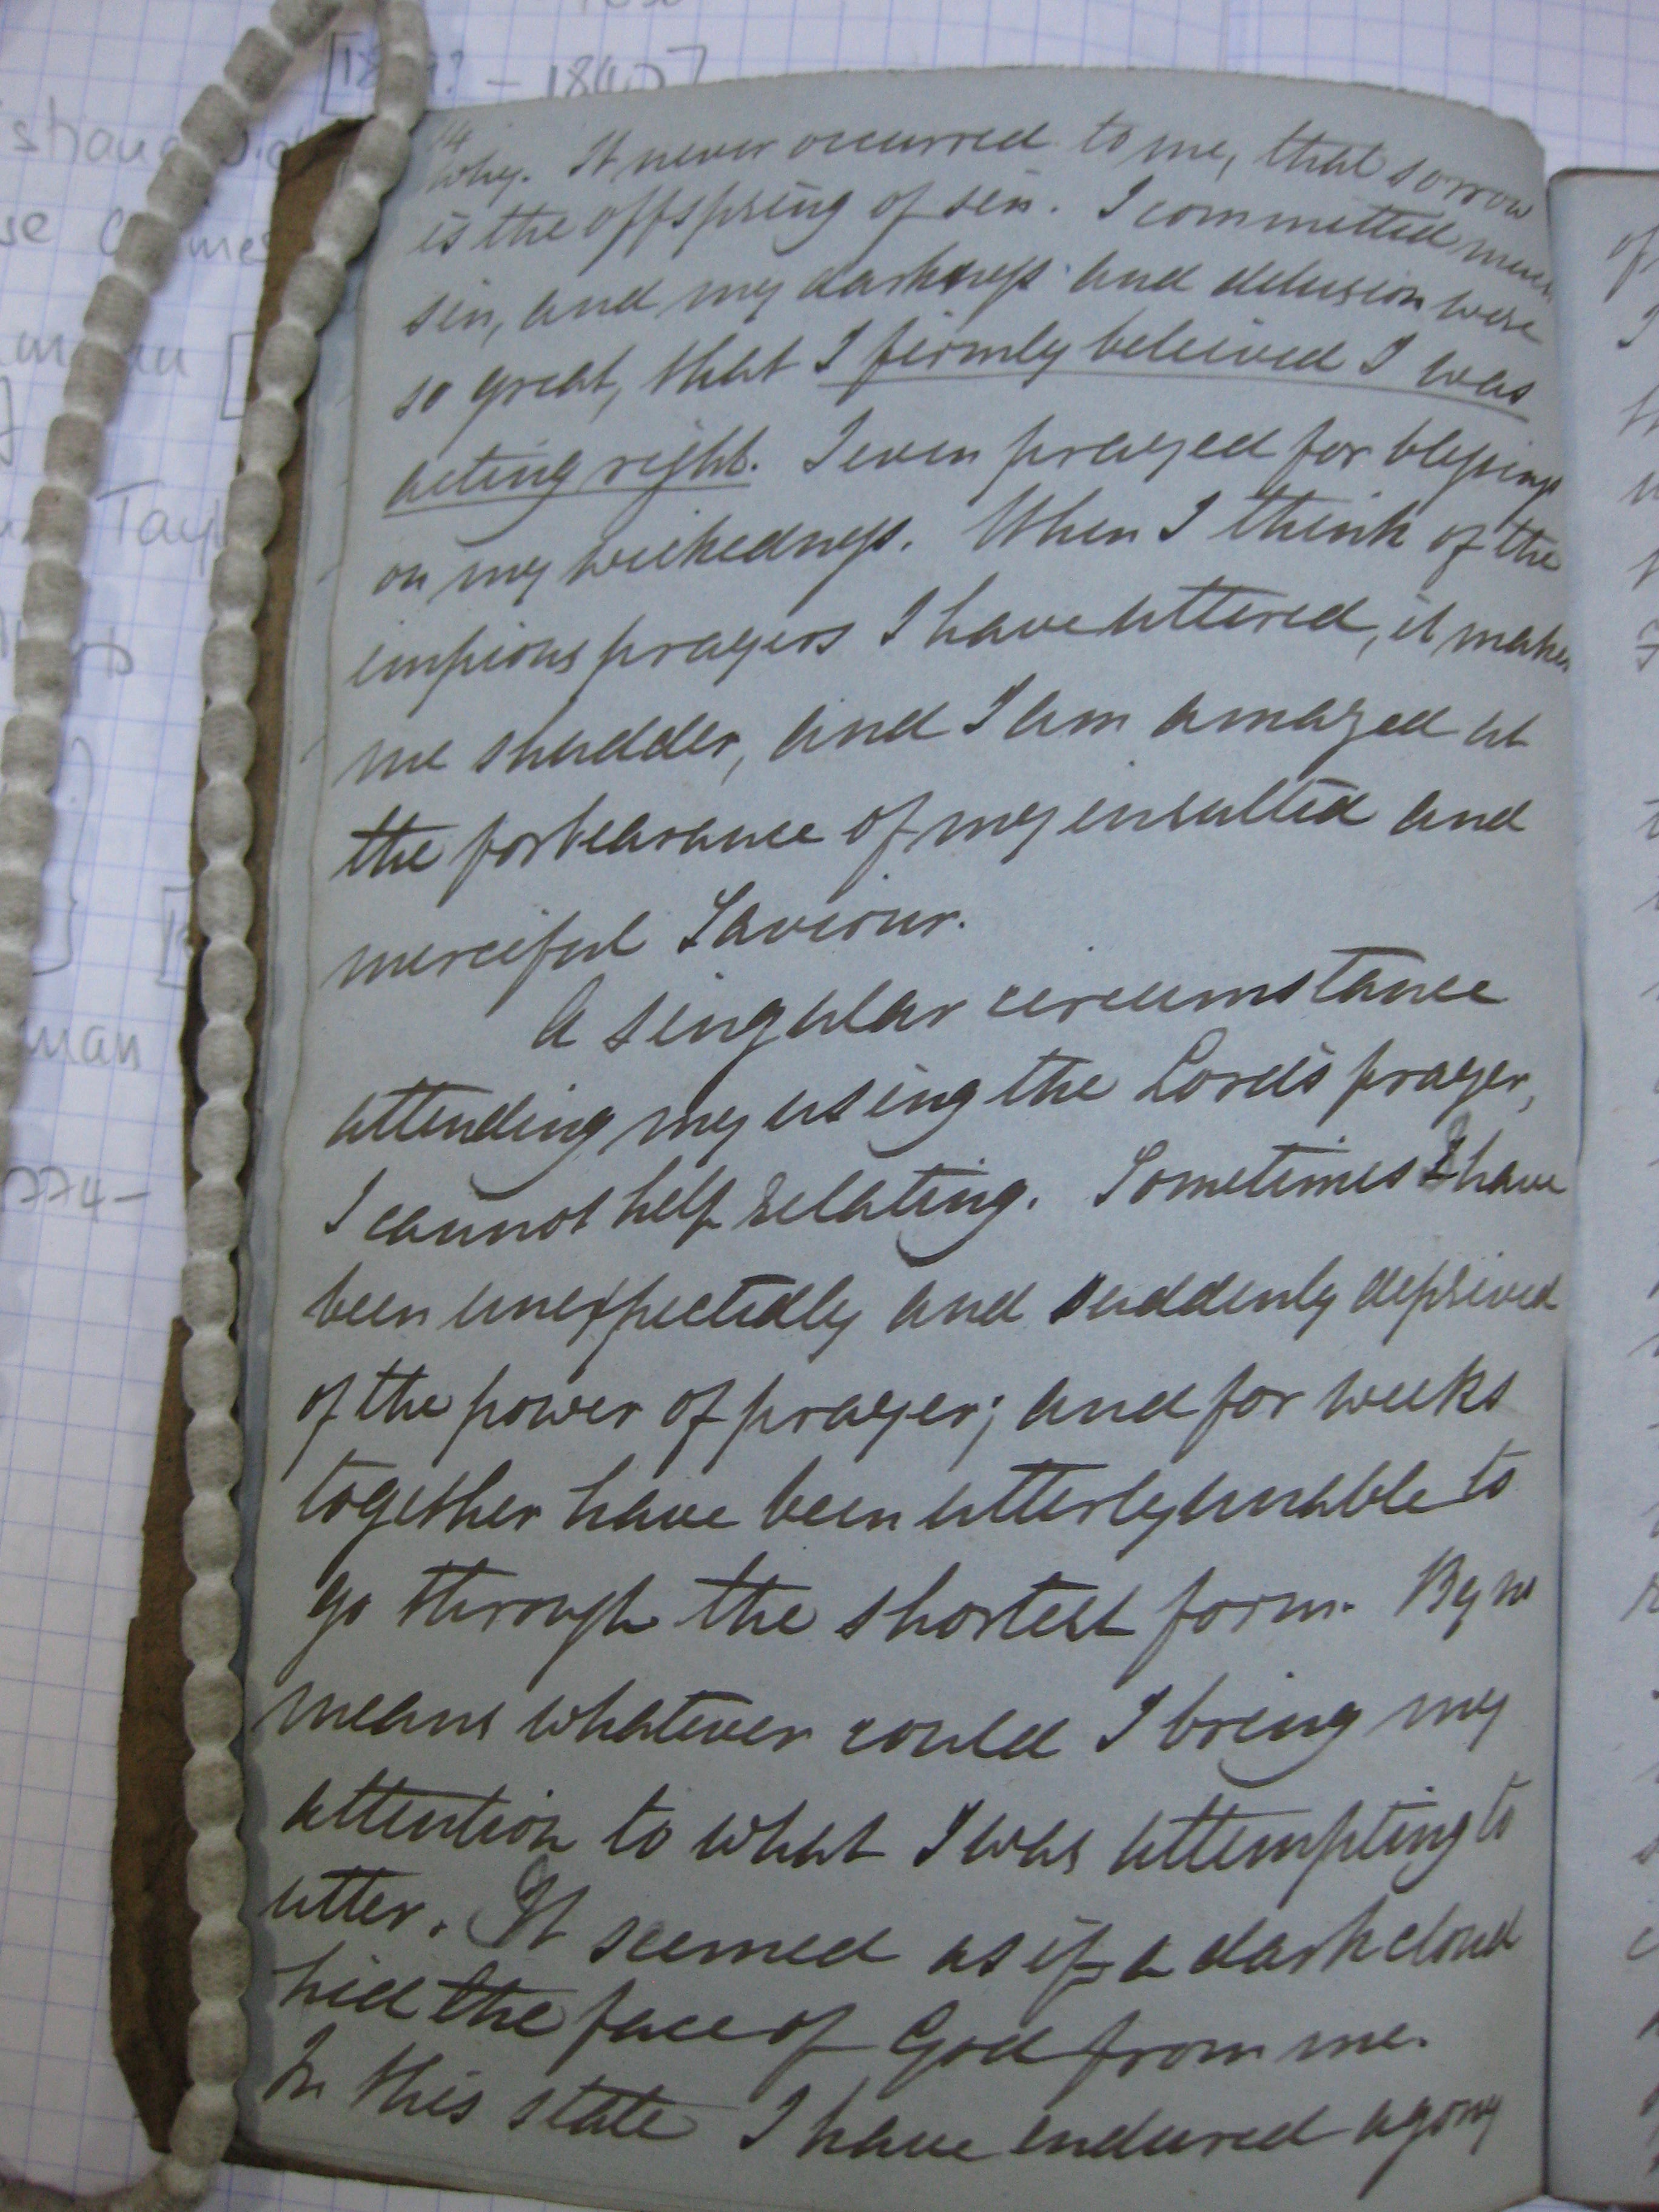 [18 ? - 1840]
Tayl
man
774-
14
why. It never occurred to me, that sorrow
is the offspring of sin. I committed much
sin, and my darkness and delusion were
so great, that I firmly believed I was
acting right. I even prayed for blessings
on my wickedness. When I think of the
impious prayers I have uttered, it makes
me shudder, and I am amazed at
the forbearance of my insulted and
merciful Saviour.
A singular circumstance
attending my using the Lord's prayer,
I cannot help relating. Sometimes I have
been unexpectedly and suddenly deprived
of the power of prayer; and for weeks
together have been utterly unable to
go through the shortest form. By no
means whatever could I bring my
attention to what I was attempting to
utter. It seemed as if a dark cloud
hid the face of God from me.
In this state I have endured agony